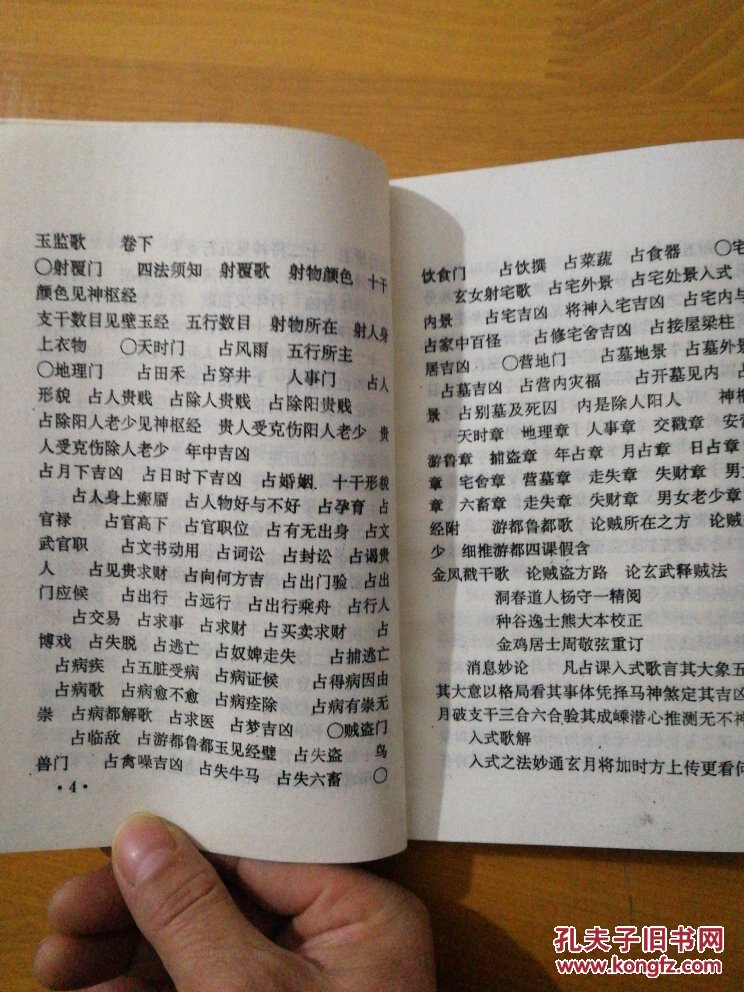 玉监歌 卷下
〇射覆门 四法须知 射覆歌 射物颜色 十干
颜色见神枢经
支干数目见壁玉经 五行数目 射物所在 射人身
上衣物 〇天时门 占风雨 五行所主
〇地理门 占田禾 占穿井 人事门 占人
形貌 占人贵贱 占除人贵贱 占除阳贵贱
占除阳人老少见神枢经 贵人受克伤阳人老少 贵
人受克伤除人老少 年中吉凶
占月下吉凶 占日时下吉凶 占婚姻. 十干形貌
占人身上瘢靥 占人物好与不好 占孕育 占
官禄 占官高下 占官职位 占有无出身 占文
武官职 占文书动用 占词讼 占封讼 占谒贵
人 占见贵求财 占向何方吉 占出门验 占出
门应候 占出行 占远行 占出行乘舟 占行人
占交易 占求事 占求财 占买卖求财 占
博戏 占失脱 占逃亡 占奴婢走失 占捕逃亡
占病疾 占五脏受病 占病证候 占得病因由
占病歌 占病愈不愈 占病痊除 占病有祟无
祟 占病都解歌 占求医 占梦吉凶 〇贼盗门
占临敌 占游都鲁都玉见经璧 占失盗 鸟
兽门 占禽噪吉凶 占失牛马 占失六畜 〇
·4·
饮食门 占饮撰 占菜蔬 占食器 〇宅
玄女射宅歌 占宅外景 占宅处景入式
内景 占宅吉凶 将神入宅吉凶 占宅内与
占家中百怪 占修宅舍吉凶 占接屋梁柱
居吉凶 〇营地门 占墓地景 占墓外景
占墓吉凶 占营内灾福 占开墓见内 占
景 占别墓及死囚 内是除人阳人 神枢
天时章 地理章 人事章 交戳章 安营
游鲁章 捕盗章 年占章 月占章 日占章
章 宅舍章 营墓章 走失章 失财章 男女
章 六畜章 走失章 失财章 男女老少章
经附 游都鲁都歌 论贼所在之方 论贼
少 细推游都四课假含
金凤戳干歌 论贼盗方路 论玄武释贼法
洞春道人杨守一精阅
种谷逸士熊大本校正
金鸡居士周敬弦重订
消息妙论 凡占课入式歌言其大象五
其大意以格局看其事体凭择马神煞定其吉凶
月破支干三合六合验其成嵊潜心推测无不神
入式歌解
入式之法妙通玄月将加时方上传更看何
孔夫子旧书网
www.kongfz.com